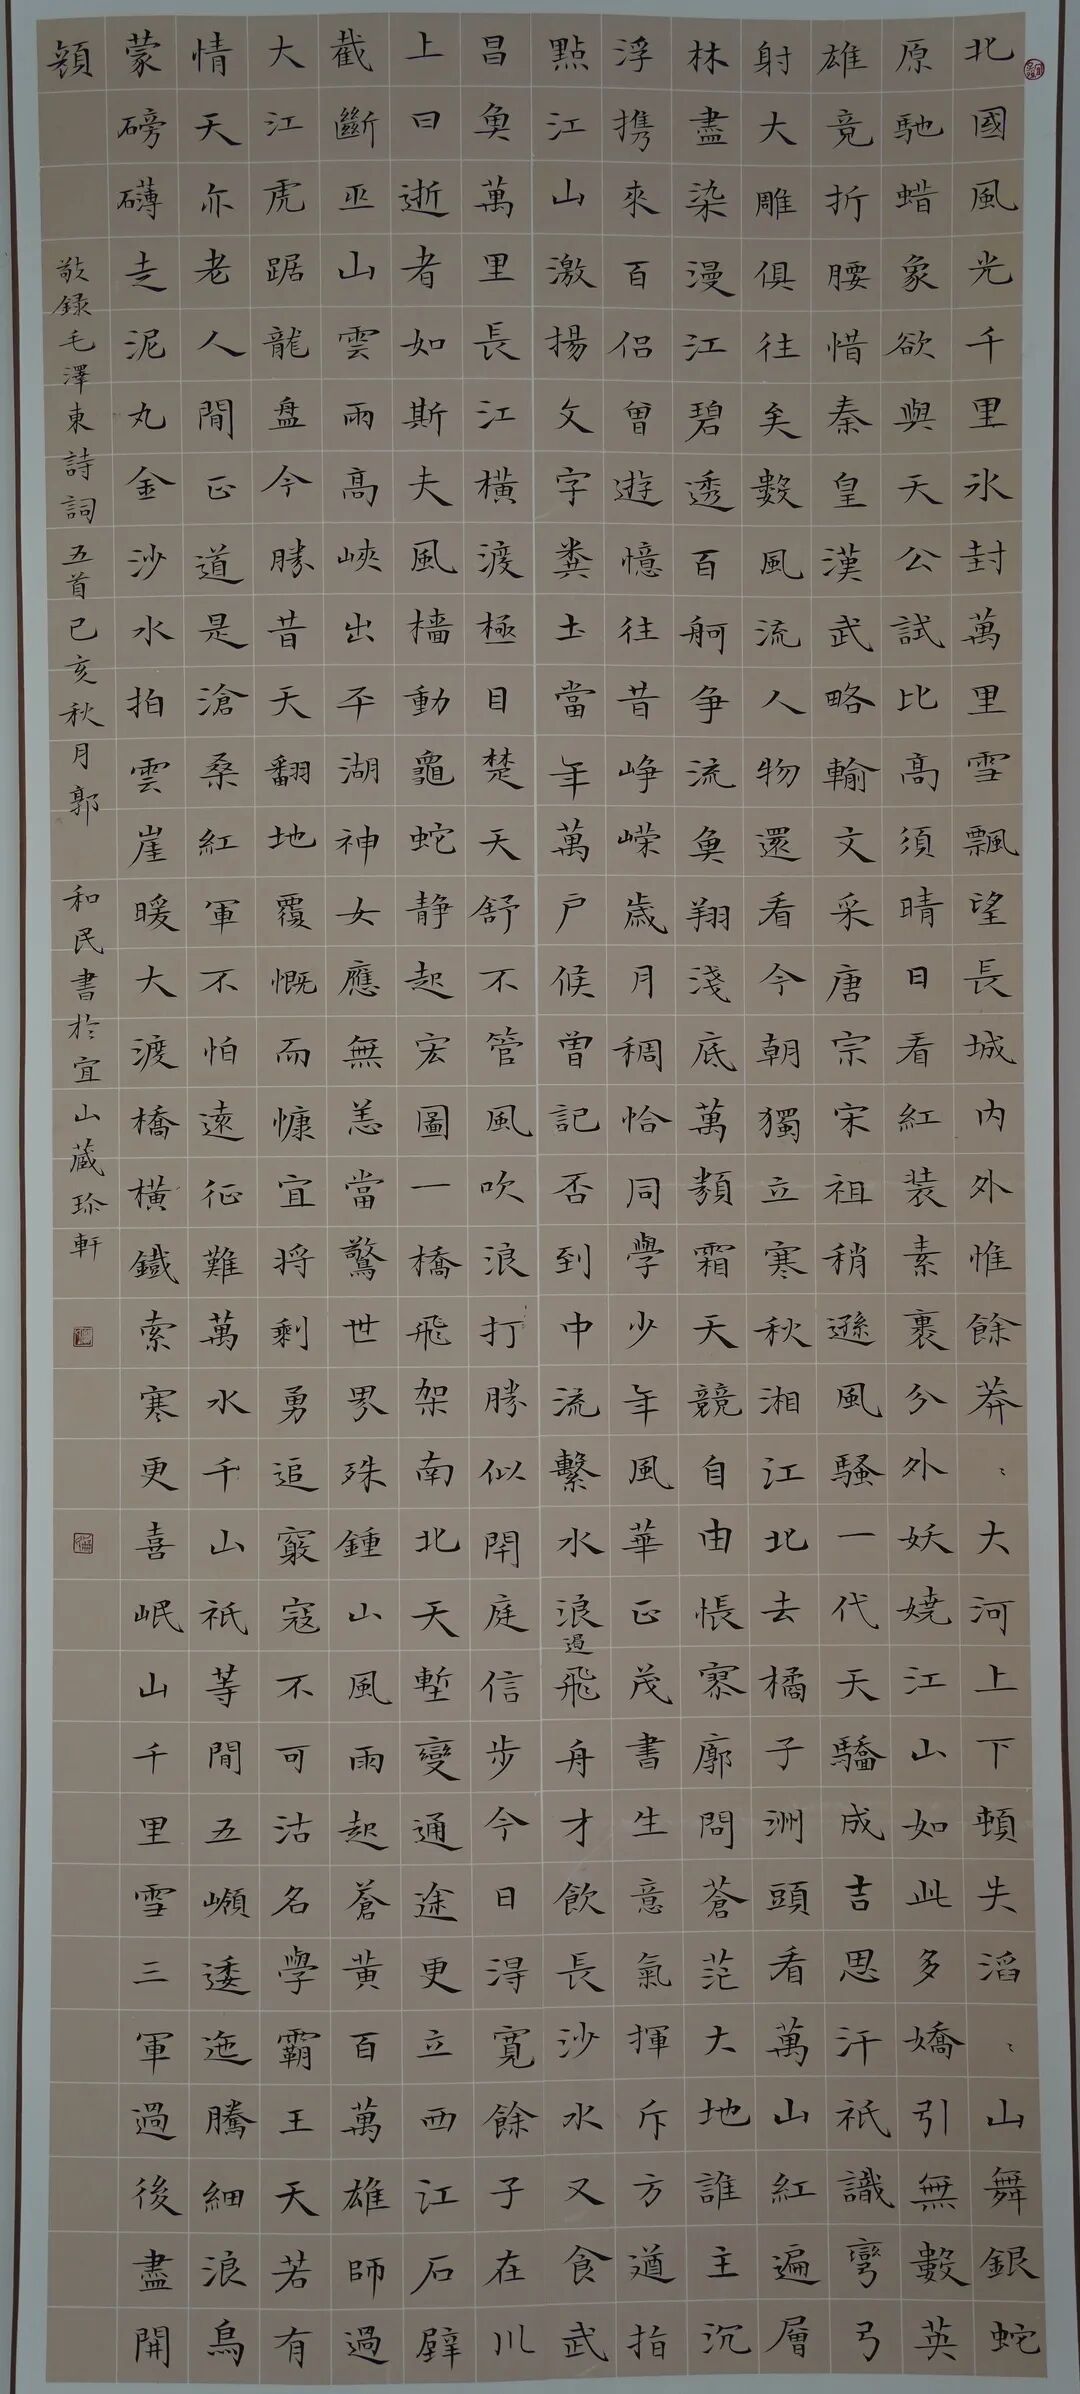 北國風光千里氷封萬里雪飄望長城内外惟餘莽〻大河上下頓失滔〻山舞銀蛇
原馳蜡象欲與天公試比高須晴日看紅装素裹分外妖嬈江山如此多嬌引無數英
雄竟折腰惜秦皇漢武略輸文采唐宗宋祖稍遜風騷一代天驕成吉思汗祇識彎弓
射大雕俱往矣數風流人物還看今朝獨立寒秋湘江北去橘子洲頭看萬山紅遍層
林盡染漫江碧透百舸争流魚翔淺底萬類霜天競自由悵寥廓問蒼茫大地誰主沉
浮携來百侶曾遊憶往昔崢嶸歲月稠恰同學少年風華正茂書生意氣揮斥方遒指
點江山激揚文字糞土當年萬户候曾記否到中流繫水浪遏飛舟才飲長沙水又食武
昌魚萬里長江橫渡極目楚天舒不管風吹浪打勝似閑庭信步今日得寬餘子在川
上曰逝者如斯夫風檣動龜蛇静起宏圖一橋飛架南北天塹變通途更立西江石壁
截斷巫山雲雨高峽出平湖神女應無恙當驚世界殊鍾山風雨起蒼黃百萬雄師過
大江虎踞龍盘今勝昔天翻地覆慨而慷宜将剩勇追窮寇不可沽名學霸王天若有
情天亦老人間正道是滄桑紅軍不怕遠征難萬水千山祇等閒五嶺逶迤騰細浪烏
蒙磅礴走泥丸金沙水拍雲崖暖大渡橋橫鐵索寒更喜岷山千里雪三軍過後盡開
顏
敬錄毛澤東詩詞五首己亥秋月郭和民書於宜山藏珍軒